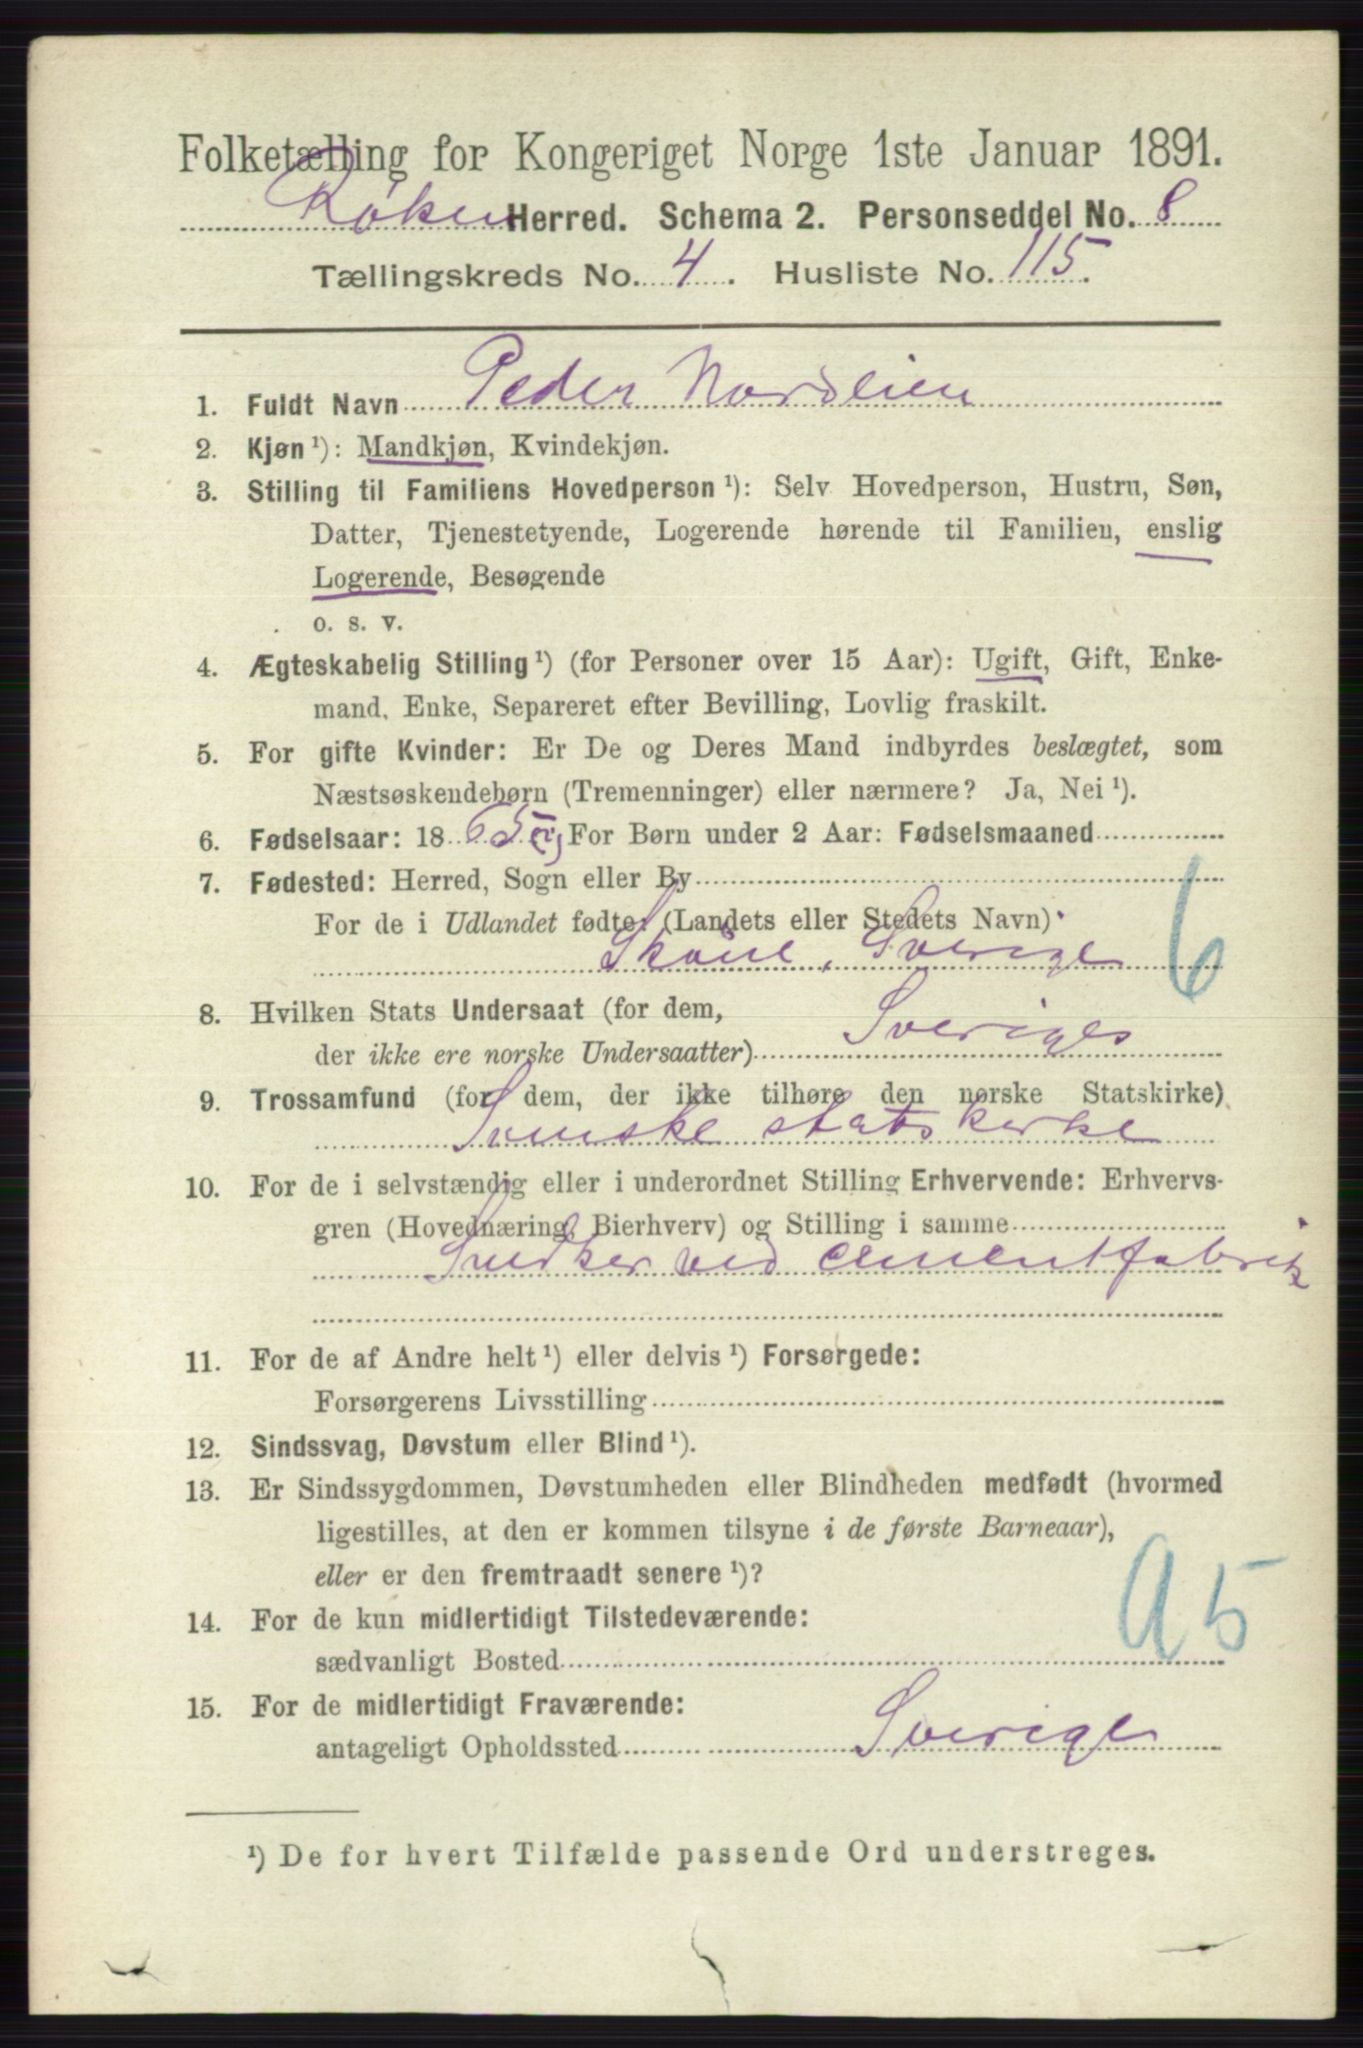 Folketælling for Kongeriget Norge 1ste Januar 1891.
Røken Herred. Schema 2. Personseddel No. 8
Tællingskreds No. 4. Husliste No. 115.
1. Fuldt Navn Peder Nordlien
2. Kjøn ¹): Mandkjøn, Kvindekjøn.
3. Stilling til Familiens Hovedperson ¹): Selv Hovedperson, Hustru, Søn,
Datter, Tjenestetyende, Logerende hørende til Familien, enslig
Logerende, Besøgende
o. s. v.
4. Ægteskabelig Stilling ¹) (for Personer over 15 Aar): Ugift, Gift, Enke-
mand, Enke, Separeret efter Bevilling, Lovlig fraskilt.
5. For gifte Kvinder: Er De og Deres Mand indbyrdes beslægtet, som
Næstsøskendebørn (Tremenninger) eller nærmere? Ja, Nei ¹).
6. Fødselsaar: 1865 For Børn under 2 Aar: Fødselsmaaned
7. Fødested: Herred, Sogn eller By
For de i Udlandet fødte: (Landets eller Stedets Navn)
Skåne, Sverige 6
8. Hvilken Stats Undersaat (for dem,
der ikke ere norske Undersaatter) Sveriges
9. Trossamfund (for dem, der ikke tilhøre den norske Statskirke)
Svenske statskirke
10. For de i selvstændig eller i underordnet Stilling Erhvervende: Erhvervs-
gren (Hovednæring, Bierhverv) og Stilling i samme
Snedker ved cementfabrik
11. For de af Andre helt ¹) eller delvis ¹) Forsørgede:
Forsørgerens Livsstilling
12. Sindssvag, Døvstum eller Blind ¹).
13. Er Sindssygdommen, Døvstumheden eller Blindheden medfødt (hvormed
ligestilles, at den er kommen tilsyne i de første Barneaar),
eller er den fremtraadt senere ¹)?
14. For de kun midlertidigt Tilstedeværende:
sædvanligt Bosted
15. For de midlertidigt Fraværende:
antageligt Opholdssted Sverige
¹) De for hvert Tilfælde passende Ord understreges.